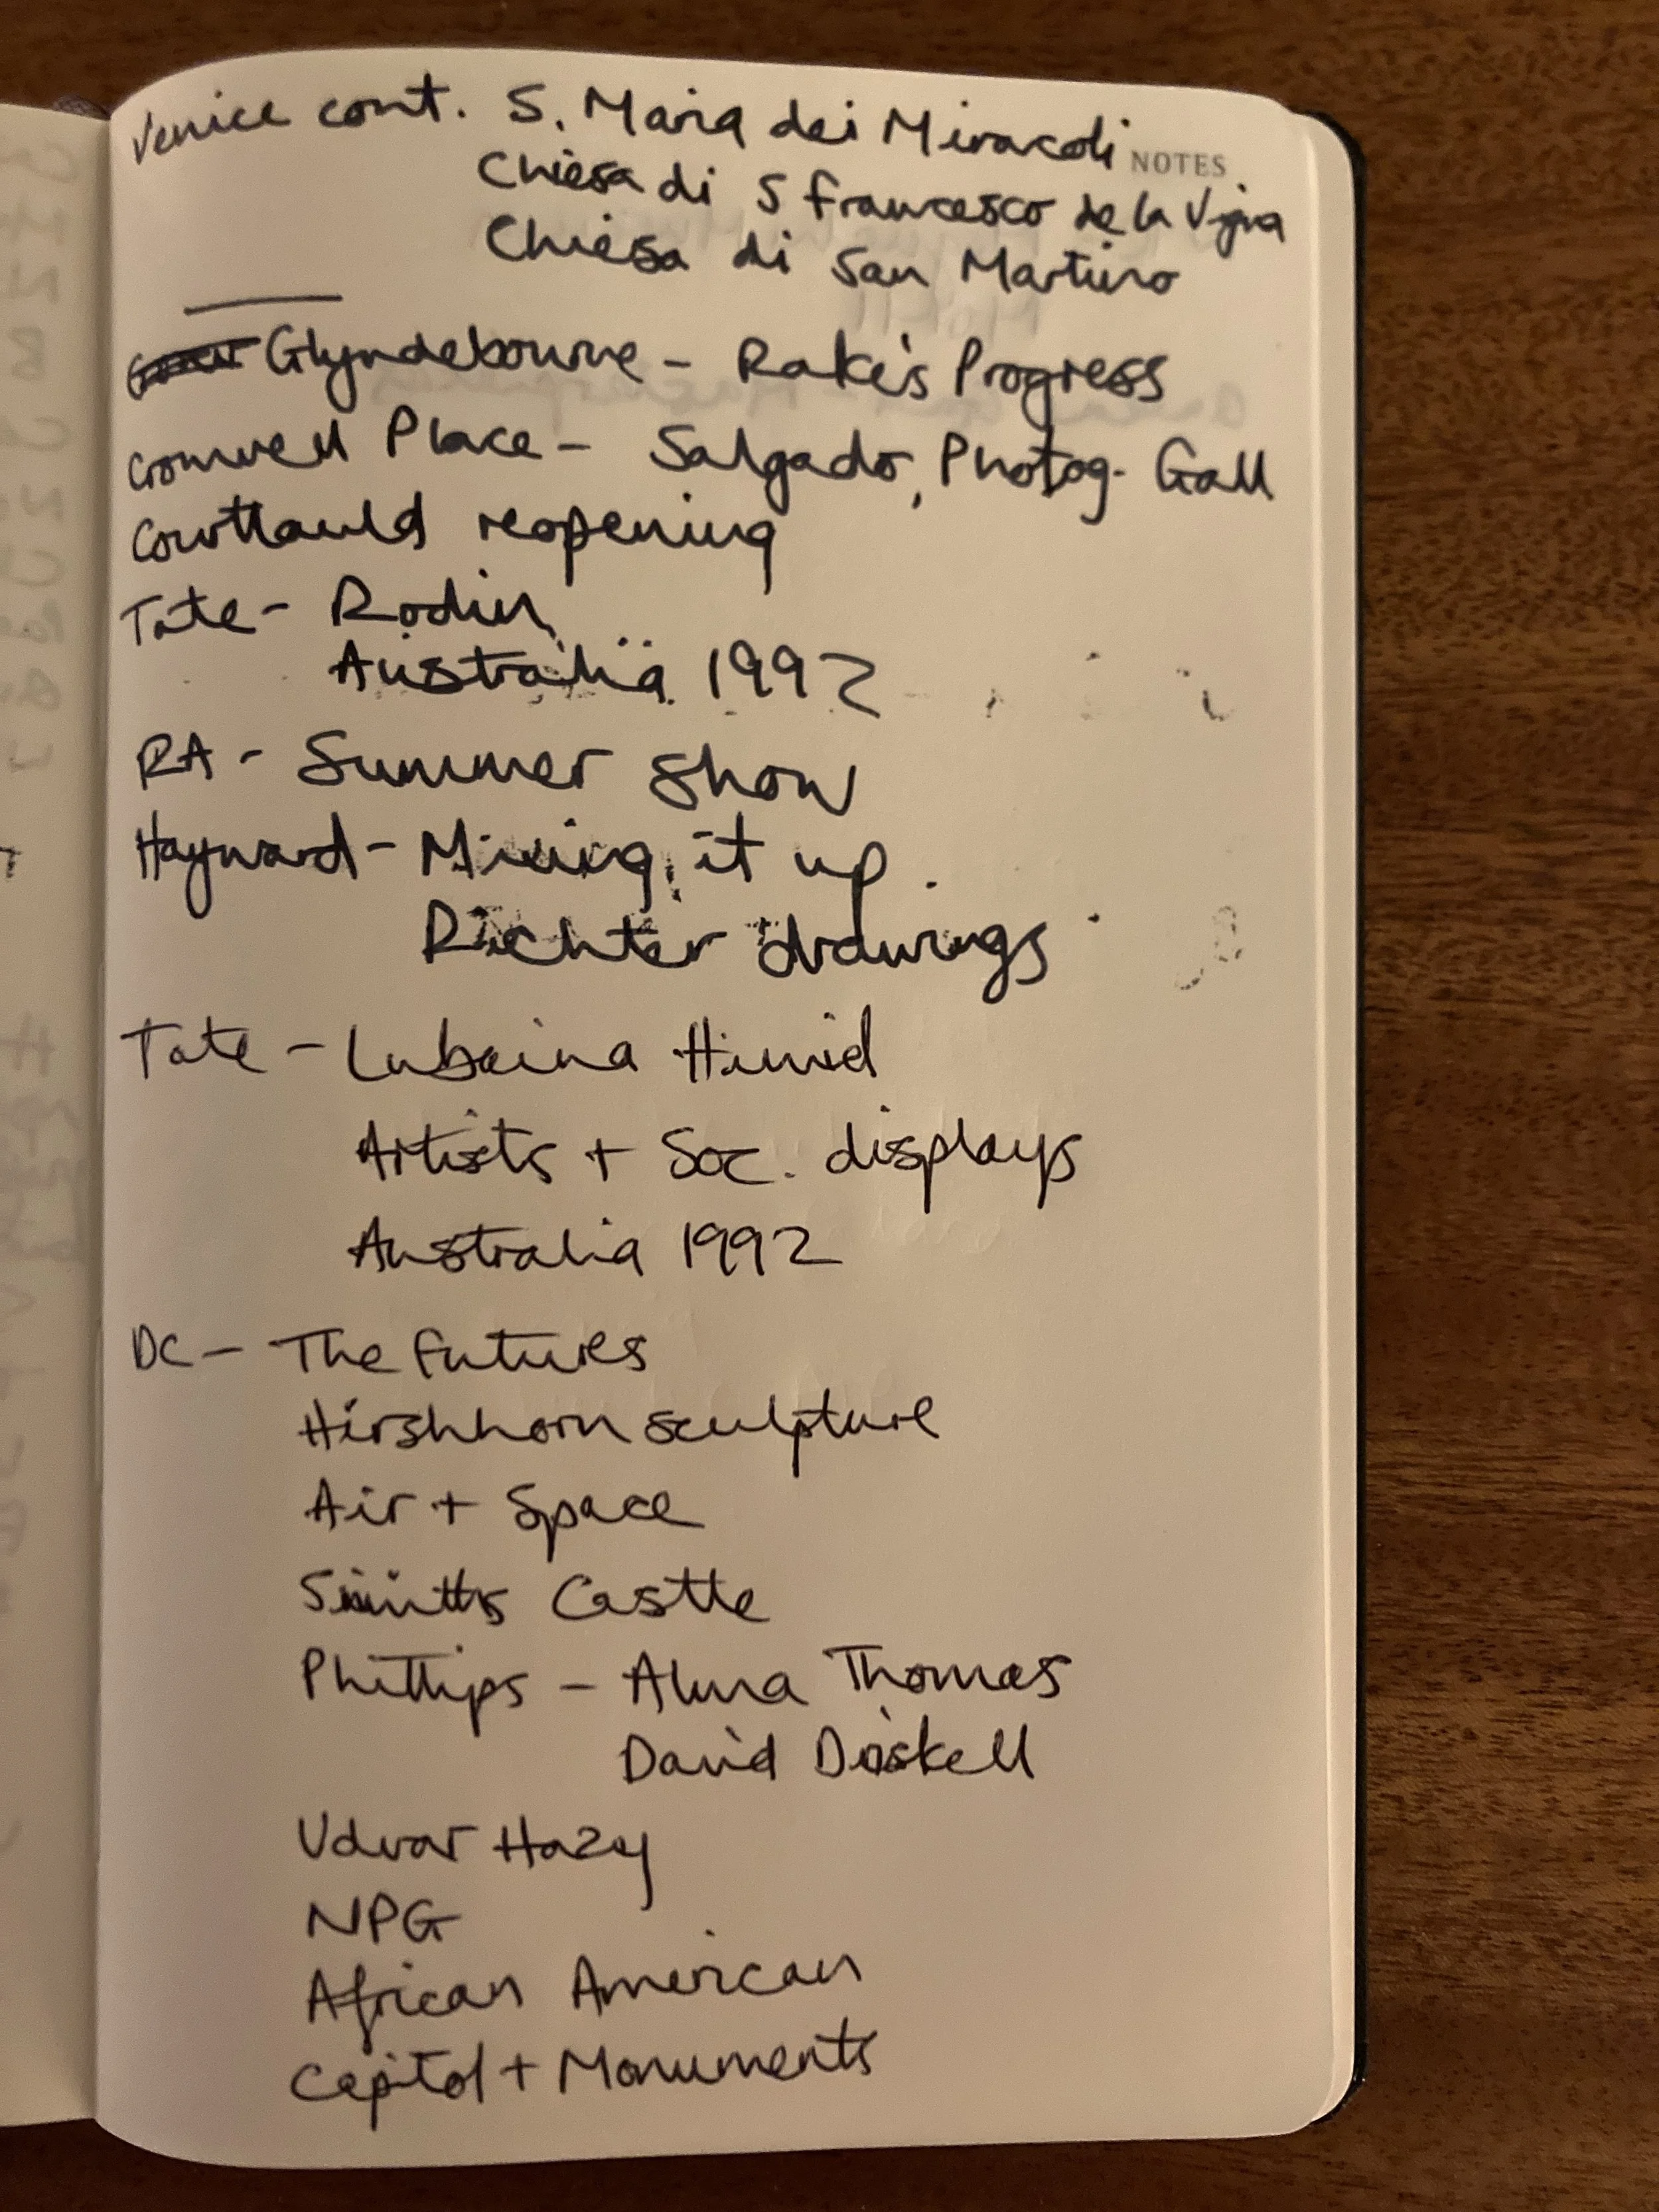 Venice cont. S. Maria dei Miracoli
NOTES
Chiesa di S Francesco de la Vigna
Chiesa di San Martino
Glyndebourne - Rake's Progress
Cromwell Place - Salgado, Photog. Gall
Courtauld reopening
Tate - Rodin
Australia 1992
RA - Summer show
Hayward - Mixing it up
Richter drawings
Tate - Lubaina Himid
Artists + Soc. displays
Australia 1992
DC - The Futures
Hirshhorn sculpture
Air + Space
Castle
Phillips - Alma Thomas
David Driskell
Udvar Hazy
NPG
African American
Capitol + Monuments